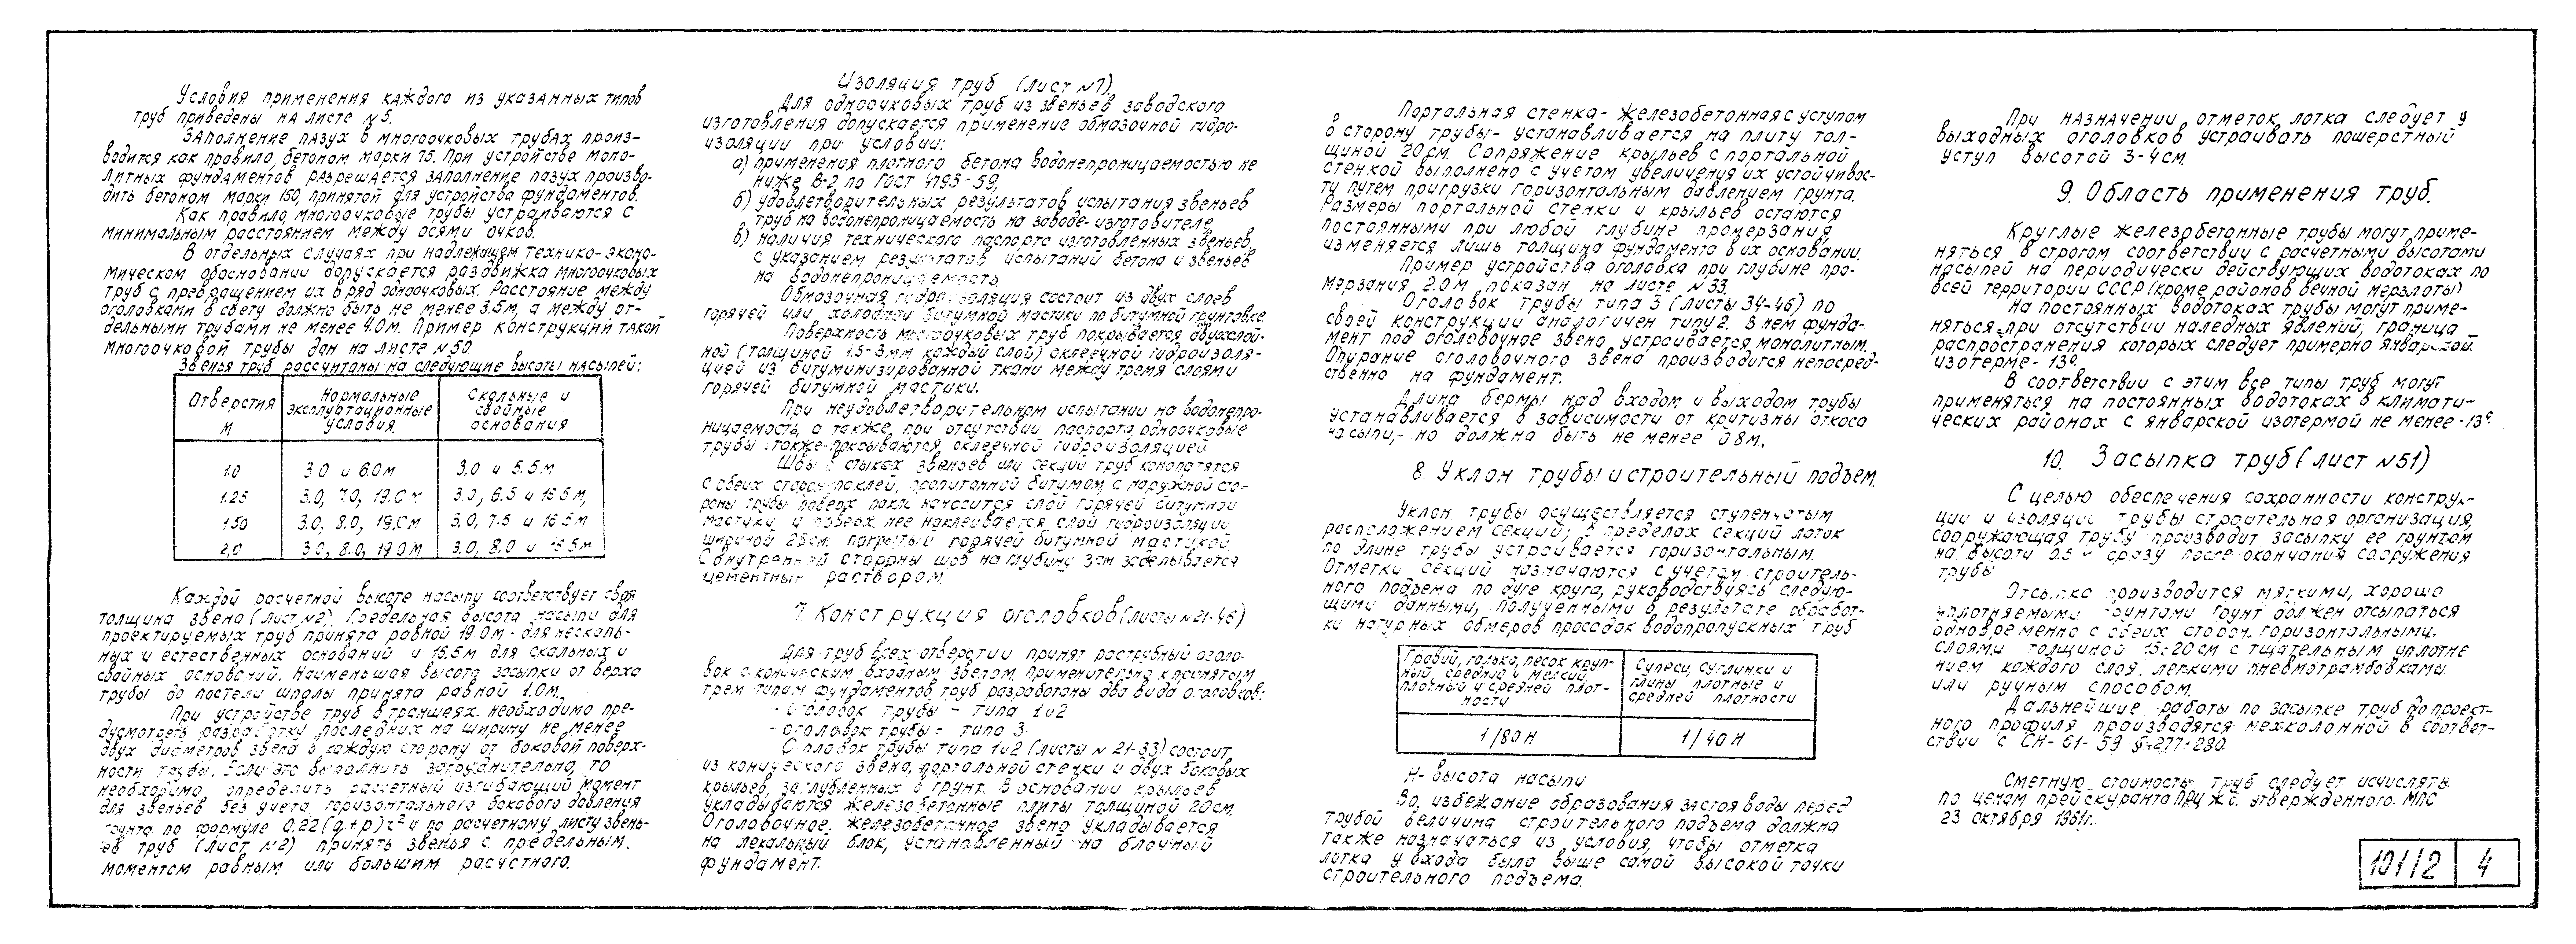 Условия применения каждого из указанных типов
труб приведены на листе №5.
Заполнение пазух в многоочковых трубах произ-
водится как правило, бетоном марки 75. При устройстве моно-
литных фундаментов разрешается заполнение пазух произво-
дить бетоном марки 150, принятой для устройства фундаментов.
Как правило, многоочковые трубы устраиваются с
минимальным расстоянием между осями очков.
В отдельных случаях при надлежащем технико-эконо-
мическом обосновании допускается раздвижка многоочковых
труб с превращением их в ряд одноочковых. Расстояние между
оголовками в свету должно быть не менее 3.5м, а между от-
дельными трубами не менее 4.0м. Пример конструкции такой
многоочковой трубы дан на листе №50.
Звенья труб рассчитаны на следующие высоты насыпей:
Отверстия м | Нормальные эксплуатационные условия | Скальные и свайные основания
1.0 | 3.0 и 6.0м | 3.0 и 5.5м
1.25 | 3.0, 7.0, 19.0м | 3.0, 6.5 и 16.5м,
1.50 | 3.0, 8.0, 19.0м | 3.0, 7.5 и 16.5м
2.0 | 3.0, 8.0, 19.0м | 3.0, 8.0 и 16.5м.
Каждой расчетной высоте насыпи соответствует своя
толщина звена (лист №2). Предельная высота насыпи для
проектируемых труб принята равной 19.0м - для нескаль-
ных и естественных оснований и 16.5м для скальных и
свайных оснований. Наименьшая высота засыпки от верха
трубы до постели шпалы принята равной 1.0м.
При устройстве труб в траншеях необходимо пре-
дусмотреть разработку последних на ширину не менее
двух диаметров звена в каждую сторону от боковой поверх-
ности трубы. Если это выполнить затруднительно, то
необходимо определить расчетный изгибающий момент
для звеньев без учета горизонтального бокового давления
грунта по формуле 0.22(q+p)r² и по расчетному листу звень-
ев труб (лист №2) принять звенья с предельным
моментом равным или большим расчетного.
Изоляция труб (лист №7).
Для одноочковых труб из звеньев заводского
изготовления допускается применение обмазочной гидро-
изоляции при условии:
а) применения плотного бетона водонепроницаемостью не
ниже В-2 по ГОСТ 4795-59,
б) удовлетворительных результатов испытания звеньев
труб на водонепроницаемость на заводе-изготовителе,
в) наличия технического паспорта изготовленных звеньев
с указанием результатов испытаний бетона и звеньев
на водонепроницаемость.
Обмазочная гидроизоляция состоит из двух слоев
горячей или холодной битумной мастики по битумной грунтовке.
Поверхность многоочковых труб покрывается двухслой-
ной (толщиной 1.5-3мм каждый слой) оклеечной гидроизоля-
цией из битуминизированной ткани между тремя слоями
горячей битумной мастики.
При неудовлетворительном испытании на водонепро-
ницаемость, а также, при отсутствии паспорта одноочковые
трубы также покрываются оклеечной гидроизоляцией.
Швы в стыках звеньев или секций труб конопатятся
с обеих сторон паклей, пропитанной битумом, с наружной сто-
роны трубы поверх пакли наносится слой горячей битумной
мастики и поверх нее наклеивается слой гидроизоляции
шириной 25см, покрытый горячей битумной мастикой.
С внутренней стороны шов на глубину 3см заделывается
цементным раствором.
7. Конструкция оголовков (листы №21-46)
Для труб всех отверстий принят раструбный оголо-
вок с коническим входным звеном, применительно к принятым
трем типам фундаментов труб разработаны два вида оголовков:
- оголовок трубы - типа 1 и 2
- оголовок трубы - типа 3
Оголовок трубы типа 1 и 2 (листы №21-33) состоит
из конического звена, портальной стенки и двух боковых
крыльев, заглубленных в грунт. В основании крыльев
укладываются железобетонные плиты толщиной 20см.
Оголовочное железобетонное звено укладывается
на лекальный блок, установленный на блочный
фундамент.
Портальная стенка - железобетонная с уступом
в сторону трубы - устанавливается на плиту тол-
щиной 20см. Сопряжение крыльев с портальной
стенкой выполнено с учетом увеличения их устойчивос-
ти путем пригрузки горизонтальным давлением грунта.
Размеры портальной стенки и крыльев остаются
постоянными при любой глубине промерзания,
изменяется лишь толщина фундамента в их основании.
Пример устройства оголовка при глубине про-
мерзания 2.0м показан на листе №33.
Оголовок трубы типа 3 (листы 34-46) по
своей конструкции аналогичен типу 2. В нем фунда-
мент под оголовочное звено устраивается монолитным.
Опирание оголовочного звена производится непосред-
ственно на фундамент.
Длина бермы над входом и выходом трубы
устанавливается в зависимости от крутизны откоса
насыпи, но должна быть не менее 0.8м.
8. Уклон трубы и строительный подъем.
Уклон трубы осуществляется ступенчатым
расположением секций; в пределах секций лоток
по длине трубы устраивается горизонтальным.
Отметки секций назначаются с учетом строитель-
ного подъема по дуге круга, руководствуясь следую-
щими данными, полученными в результате обработ-
ки натурных обмеров просадок водопропускных труб
Гравий, галька, песок круп-ный, средний и мелкий, плотный и средней плот-ности | Супеси, суглинки и глины плотные и средней плотности
1/80 Н | 1/40 Н
Н - высота насыпи
Во избежание образования застоя воды перед
трубой величина строительного подъема должна
также назначаться из условия, чтобы отметка
лотка у входа была выше самой высокой точки
строительного подъема.
При назначении отметок лотка следует у
выходных оголовков устраивать пошерстный
уступ высотой 3-4см.
9. Область применения труб.
Круглые железобетонные трубы могут приме-
няться в строгом соответствии с расчетными высотами
насыпей на периодически действующих водотоках по
всей территории СССР (кроме районов вечной мерзлоты)
На постоянных водотоках трубы могут приме-
няться при отсутствии наледных явлений; граница
распространения которых следует примерно январской
изотерме -13°.
В соответствии с этим все типы труб могут
применяться на постоянных водотоках в климати-
ческих районах с январской изотермой не менее -13°
10. Засыпка труб (лист №51)
С целью обеспечения сохранности конструк-
ции и изоляции трубы строительная организация,
сооружающая трубу производит засыпку ее грунтом
на высоту 0.5м сразу после окончания сооружения
трубы
Отсыпка производится мягкими, хорошо
уплотняемыми грунтами. Грунт должен отсыпаться
одновременно с обеих сторон горизонтальными
слоями толщиной 15-20см с тщательным уплотне
нием каждого слоя легкими пневмотрамбовками
или ручным способом.
Дальнейшие работы по засыпке труб до проект-
ного профиля производятся мехколонной в соответ-
ствии с СН-61-59 §277-280.
Сметную стоимость труб следует исчислять
по ценам прейскуранта ПРУЖС, утвержденного МПС
23 октября 1961г.
101/2 | 4